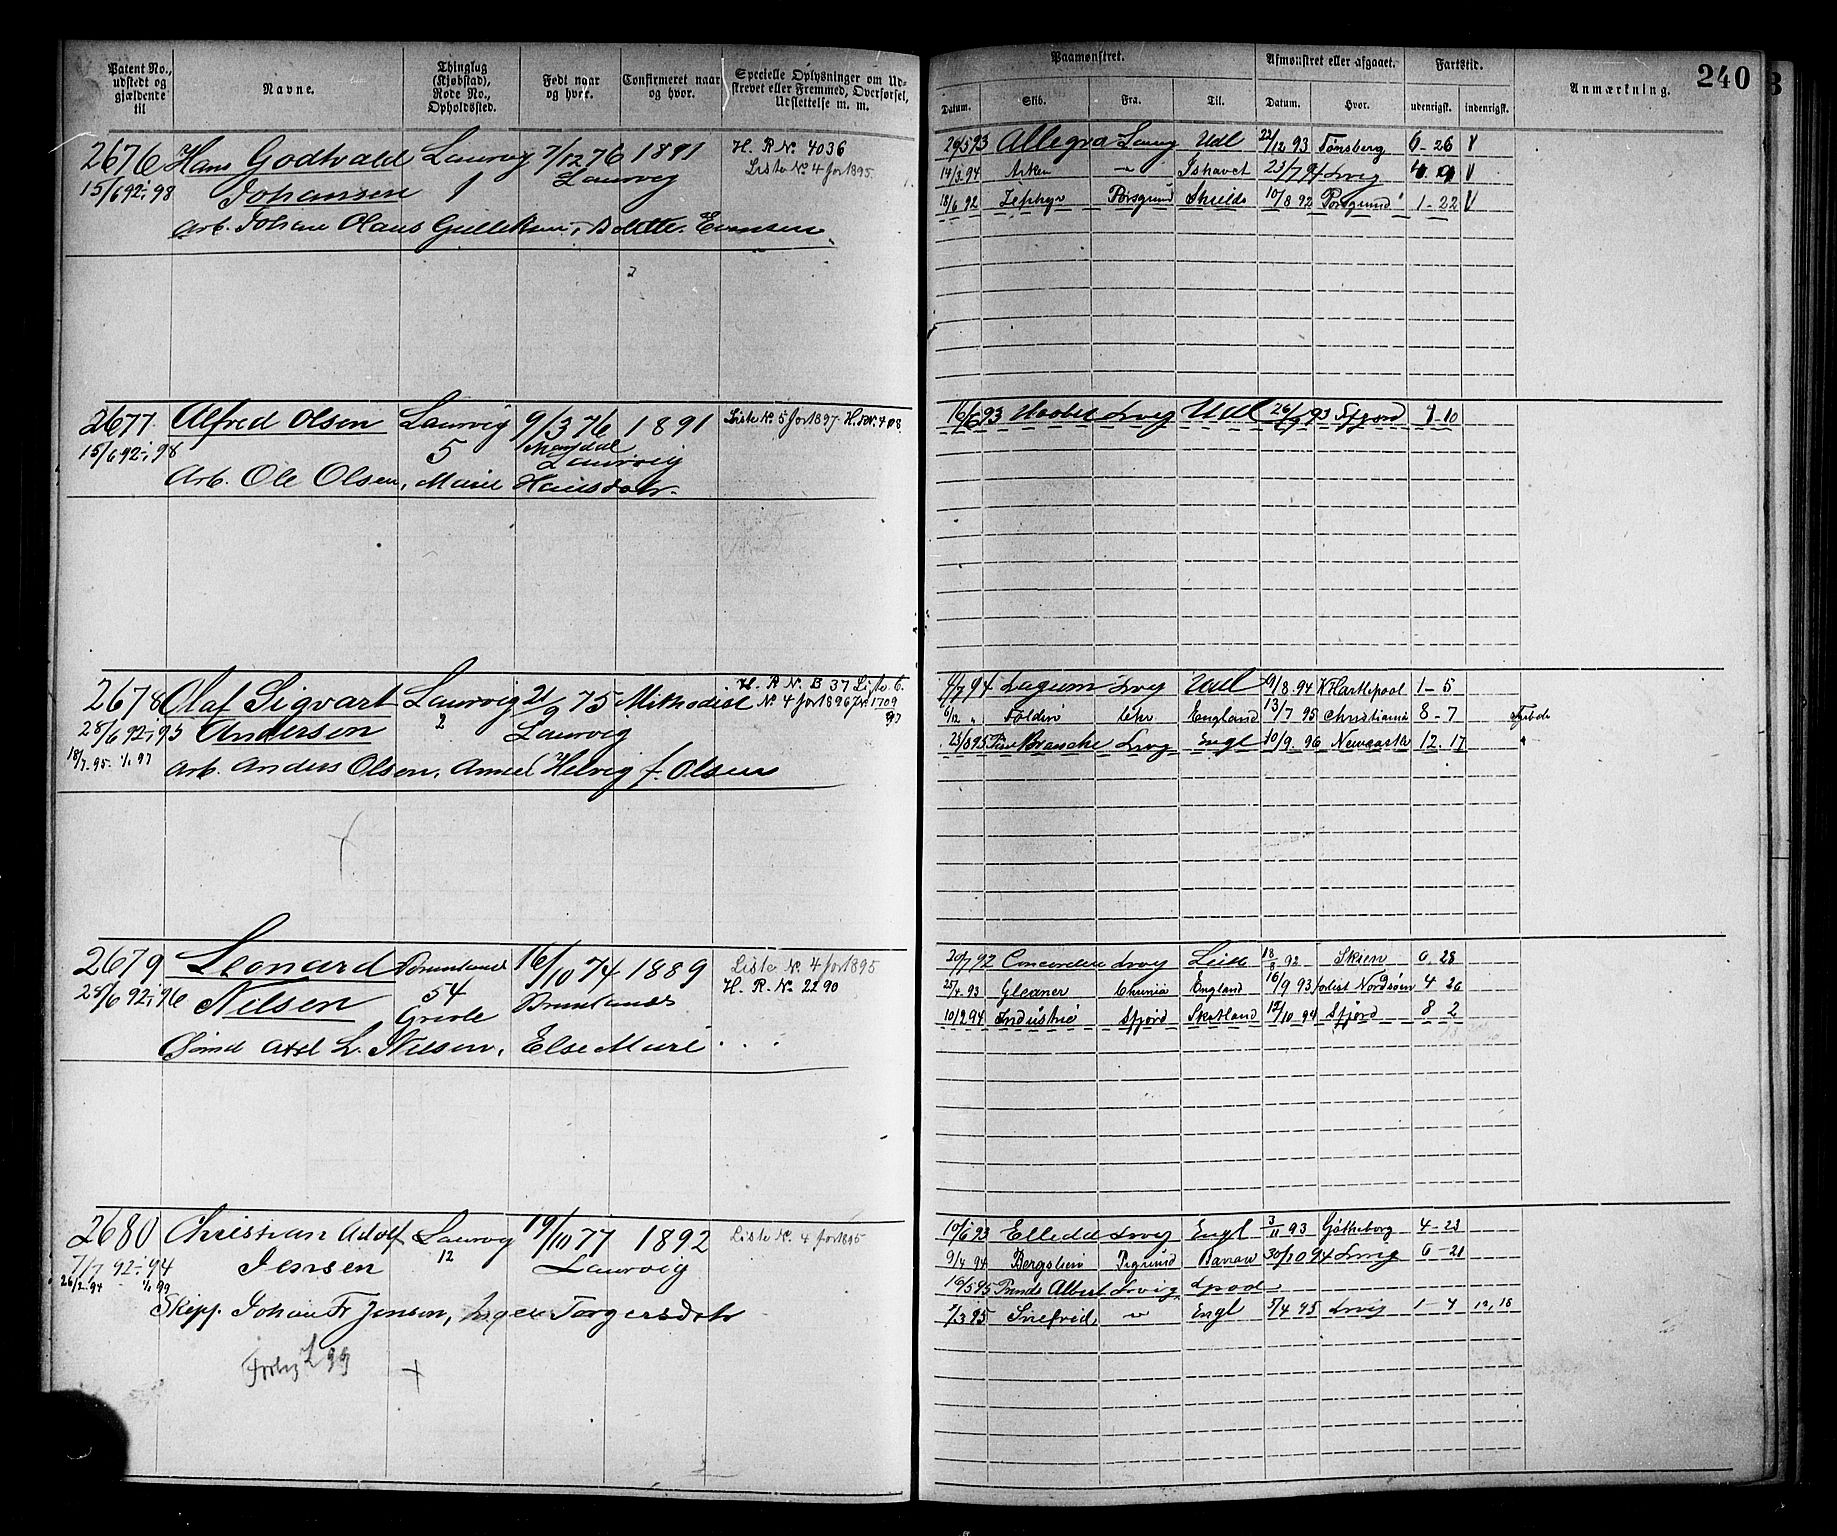 Patent No., udstedt og gjældende til
Navne.
Thinglag (Kjøbstad), Rode No., Opholdssted.
Født naar og hvor.
Confirmeret naar og hvor.
Specielle Oplysninger om Udskrevet eller Fremmed, Overførsel, Udslettelse m. m.
Paamønstret.
Datum. Skib. Fra. Til.
Afmønstret eller afgaaet.
Datum. Hvor.
Fartstid.
udenrigsk. indenrigsk.
Anmærkning.
240
2676 Hans Godtvald Laurvig 7/12 76 1891 H. R. No. 4036
15/6 92-i 98 Johansen 1 Laurvig Liste No. 4 for 1895.
Arb. Johan Claus Gulliksen, Bolette Evensen
Allegra Laurvig Udl 22/12 93 Tønsberg 6-26
14/3 94 Ishavet 23/7 94 Lvig
18/6 92 Zephyr Porsgrund Shields 10/8 92 Porsgrund 1-22
2677 Alfred Olsen Laurvig 9/3 76 1891 Liste No. 5 for 1897. H. R. No. 408
15/6 92-i 98 5 Laurvig
Arb. Ole Olsen, Marie Hansdatr.
16/6 93 Lvig Udl 26/9 93 Sfjord 7-10
2678 Olaf Sigvart Laurvig 21/9 75 Methodist H. R. No. B 37 Liste C.
28/6 92-i 95 Andersen 2 Laurvig No. 4 for 1896 1709
18/7 95 1/1 97 Arb. Anders Olsen, Anne Helvig f. Olsen 97
94 Lagum Lvig Udl 9/8 94 W Hartlepool 1-5
6/12 " Foldin Chr England 13/7 95 Christiania 8-7
23/8 95 Lvig Engl 10/9 96 Newcastle 12.17
2679 Leonard Brunlanes 16/10 74 1889 Liste No. 4 for 1895
28/6 92-i 96 Nilsen 54 Brunlanes H. R. No. 2290
Grevle
Axel L. Nilsen, Else Marie . . .
20/7 92 Concordia Lvig Leith 18/8 92 Skien 0-28
25/4 93 Gleaner Chrania England 16/9 93 forlist Nordsøen 4 26
10/2 94 Industrie Sfjord Skotland 12/10 94 Sfjord 8 2
2680 Christian Adolf Laurvig 19/10 77 1892 Liste No. 4 for 1895
7/7 92-i 94 Jensen 12 Laurvig
26/2 94 1/1 99
Skipp. Johan Fr Jensen, Inger Torgersdatr
99
10/6 93 Ellida Lvig Engl 3/11 93 Gøtheborg 4-23
9/4 94 Bergslien Pgrund 30/10 94 Lvig 6-21
16/5 95 Prinds Albert Lvig
7/3 95 Snefrid, Engl 5/4 95 Lvig 1-4